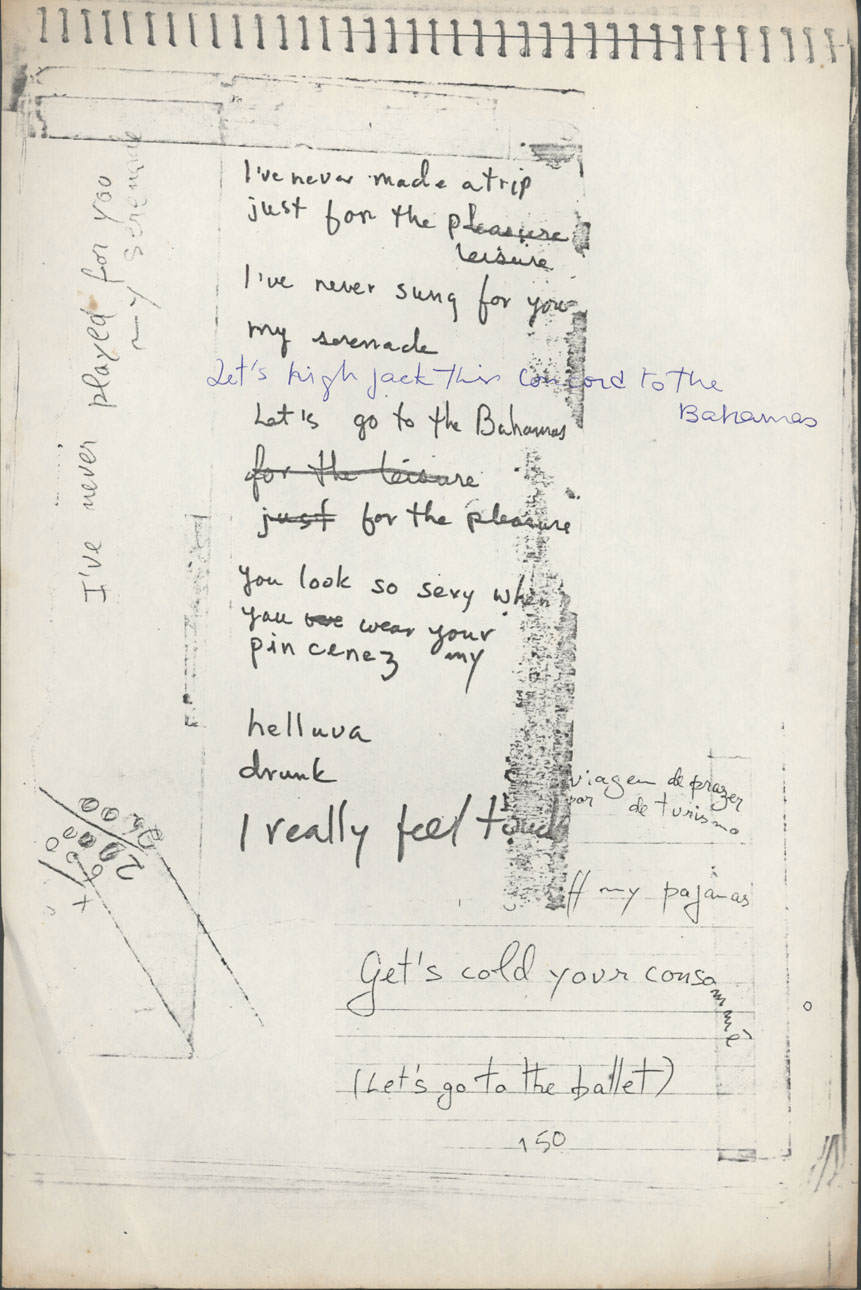 I've never played for you
my serenade
I've never made a trip
just for the pleasure
leisure
I've never sung for you
my serenade
Let's high jack this concord to the
Bahamas
Let's go to the Bahamas
for the leisure
just for the pleasure
you look so sexy when
you wear your
pin cenez my
helluva
drunk
I really feel
viagem de prazer
por de turismo
my pajamas
Get's cold your consommé
(Let's go to the ballet)
150